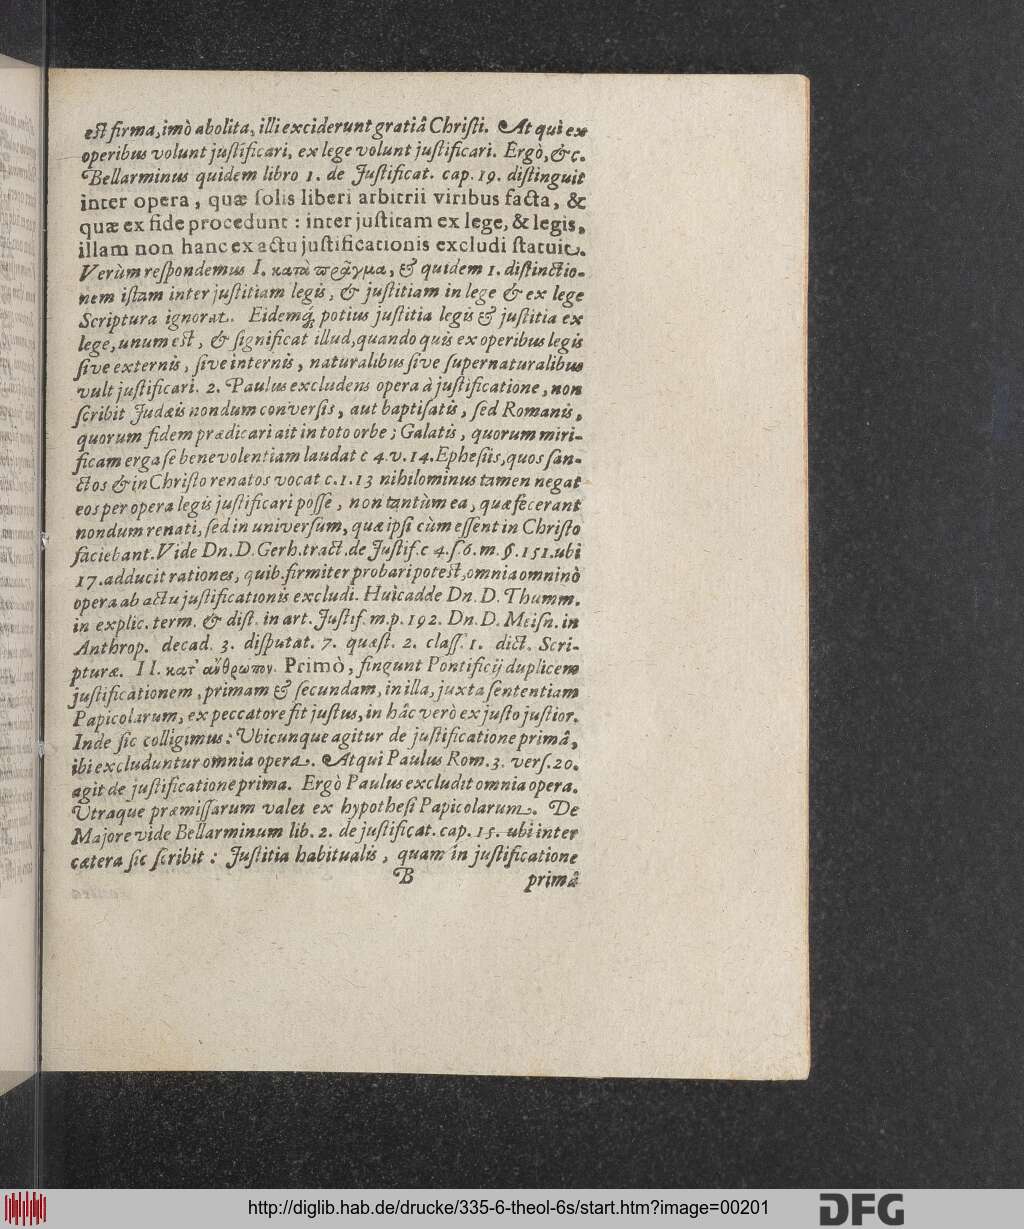 est firma, imò abolita, illi exciderunt gratiâ Christi. At qui ex
operibus volunt justificari, ex lege volunt justificari. Ergò, &c.
Bellarminus quidem libro 1. de Justificat. cap. 19. distinguit
inter opera, quæ solis liberi arbitrii viribus facta, &
quæ ex fide procedunt: inter justitam ex lege, & legis,
illam non hanc ex actu justificationis excludi statuit.
Verùm respondemus I. κατὰ πρᾶγμα, & quidem 1. distinctio-
nem istam inter justitiam legis, & justitiam in lege & ex lege
Scriptura ignorat. Eidemq́; potius justitia legis & justitia ex
lege, unum est, & significat illud, quando quis ex operibus legis
sive externis, sive internis, naturalibus sive supernaturalibus
vult justificari. 2. Paulus excludens opera à justificatione, non
scribit Judæis nondum conversis, aut baptisatis, sed Romanis,
quorum fidem prædicari ait in toto orbe; Galatis, quorum miri-
ficam erga se benevolentiam laudat c 4. v. 14. Ephesiis, quos san-
ctos & in Christo renatos vocat c. 1. 13 nihilominus tamen negat
eos per opera legis justificari posse, non tantùm ea, quæ fecerant
nondum renati, sed in universum, quæ ipsi cùm essent in Christo
faciebant. Vide Dn. D. Gerh. tract. de Justif. c 4. s. 6. m. §. 151. ubi
17. adducit rationes, quib. firmiter probari potest, omnia omninò
opera ab actu justificationis excludi. Huic adde Dn. D. Thumm.
in explic. term. & dist. in art. Justif. m. p. 192. Dn. D. Meisn. in
Anthrop. decad. 3. disputat. 7. quæst. 2. class. 1. dict. Scri-
pturæ. II. κατ' ἄνθρωπον. Primò, fingunt Pontificij duplicem
justificationem, primam & secundam, in illa, juxta sententiam
Papicolarum, ex peccatore fit justus, in hâc verò ex justo justior.
Inde sic colligimus: Ubicunque agitur de justificatione primâ,
ibi excluduntur omnia opera. Atqui Paulus Rom. 3. vers. 20.
agit de justificatione prima. Ergò Paulus excludit omnia opera.
Utraque præmissarum valet ex hypothesi Papicolarum. De
Majore vide Bellarminum lib. 2. de justificat. cap. 15. ubi inter
cætera sic scribit: Justitia habitualis, quam in justificatione
B primâ
http://diglib.hab.de/drucke/335-6-theol-6s/start.htm?image=00201
DFG